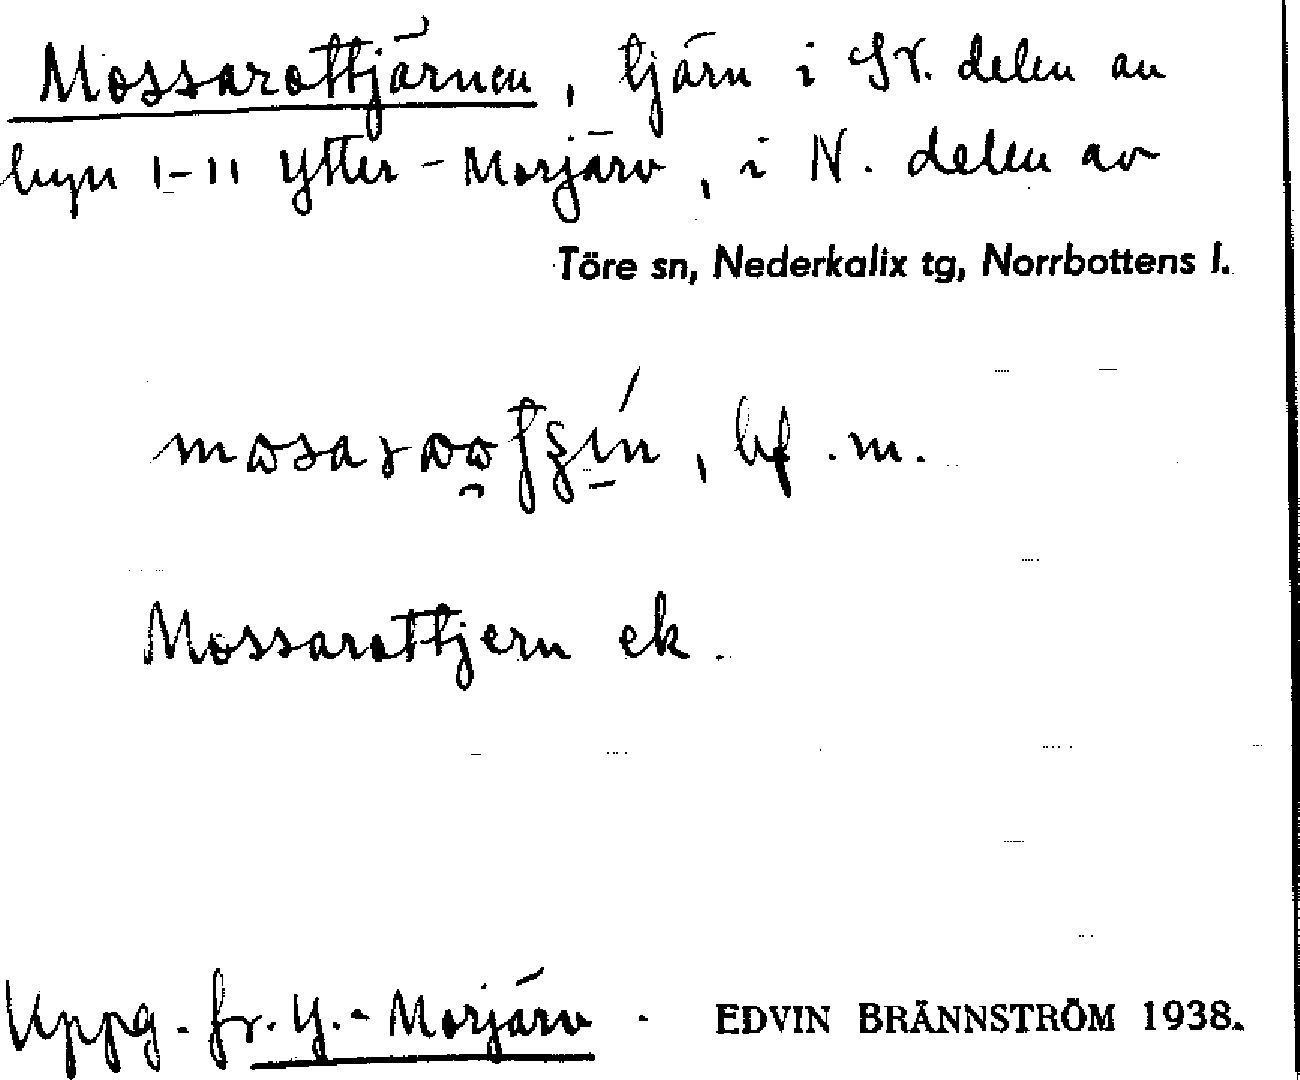 Mossarottjärnen, tjärn i SV. delen av
byn 1-11 Ytter-Morjärv, i N. delen av
Töre sn, Nederkalix tg, Norrbottens l.
bf. m.
Mossarottjern ek.
Uppg. fr. Y.-Morjärv. EDVIN BRÄNNSTRÖM 1938.